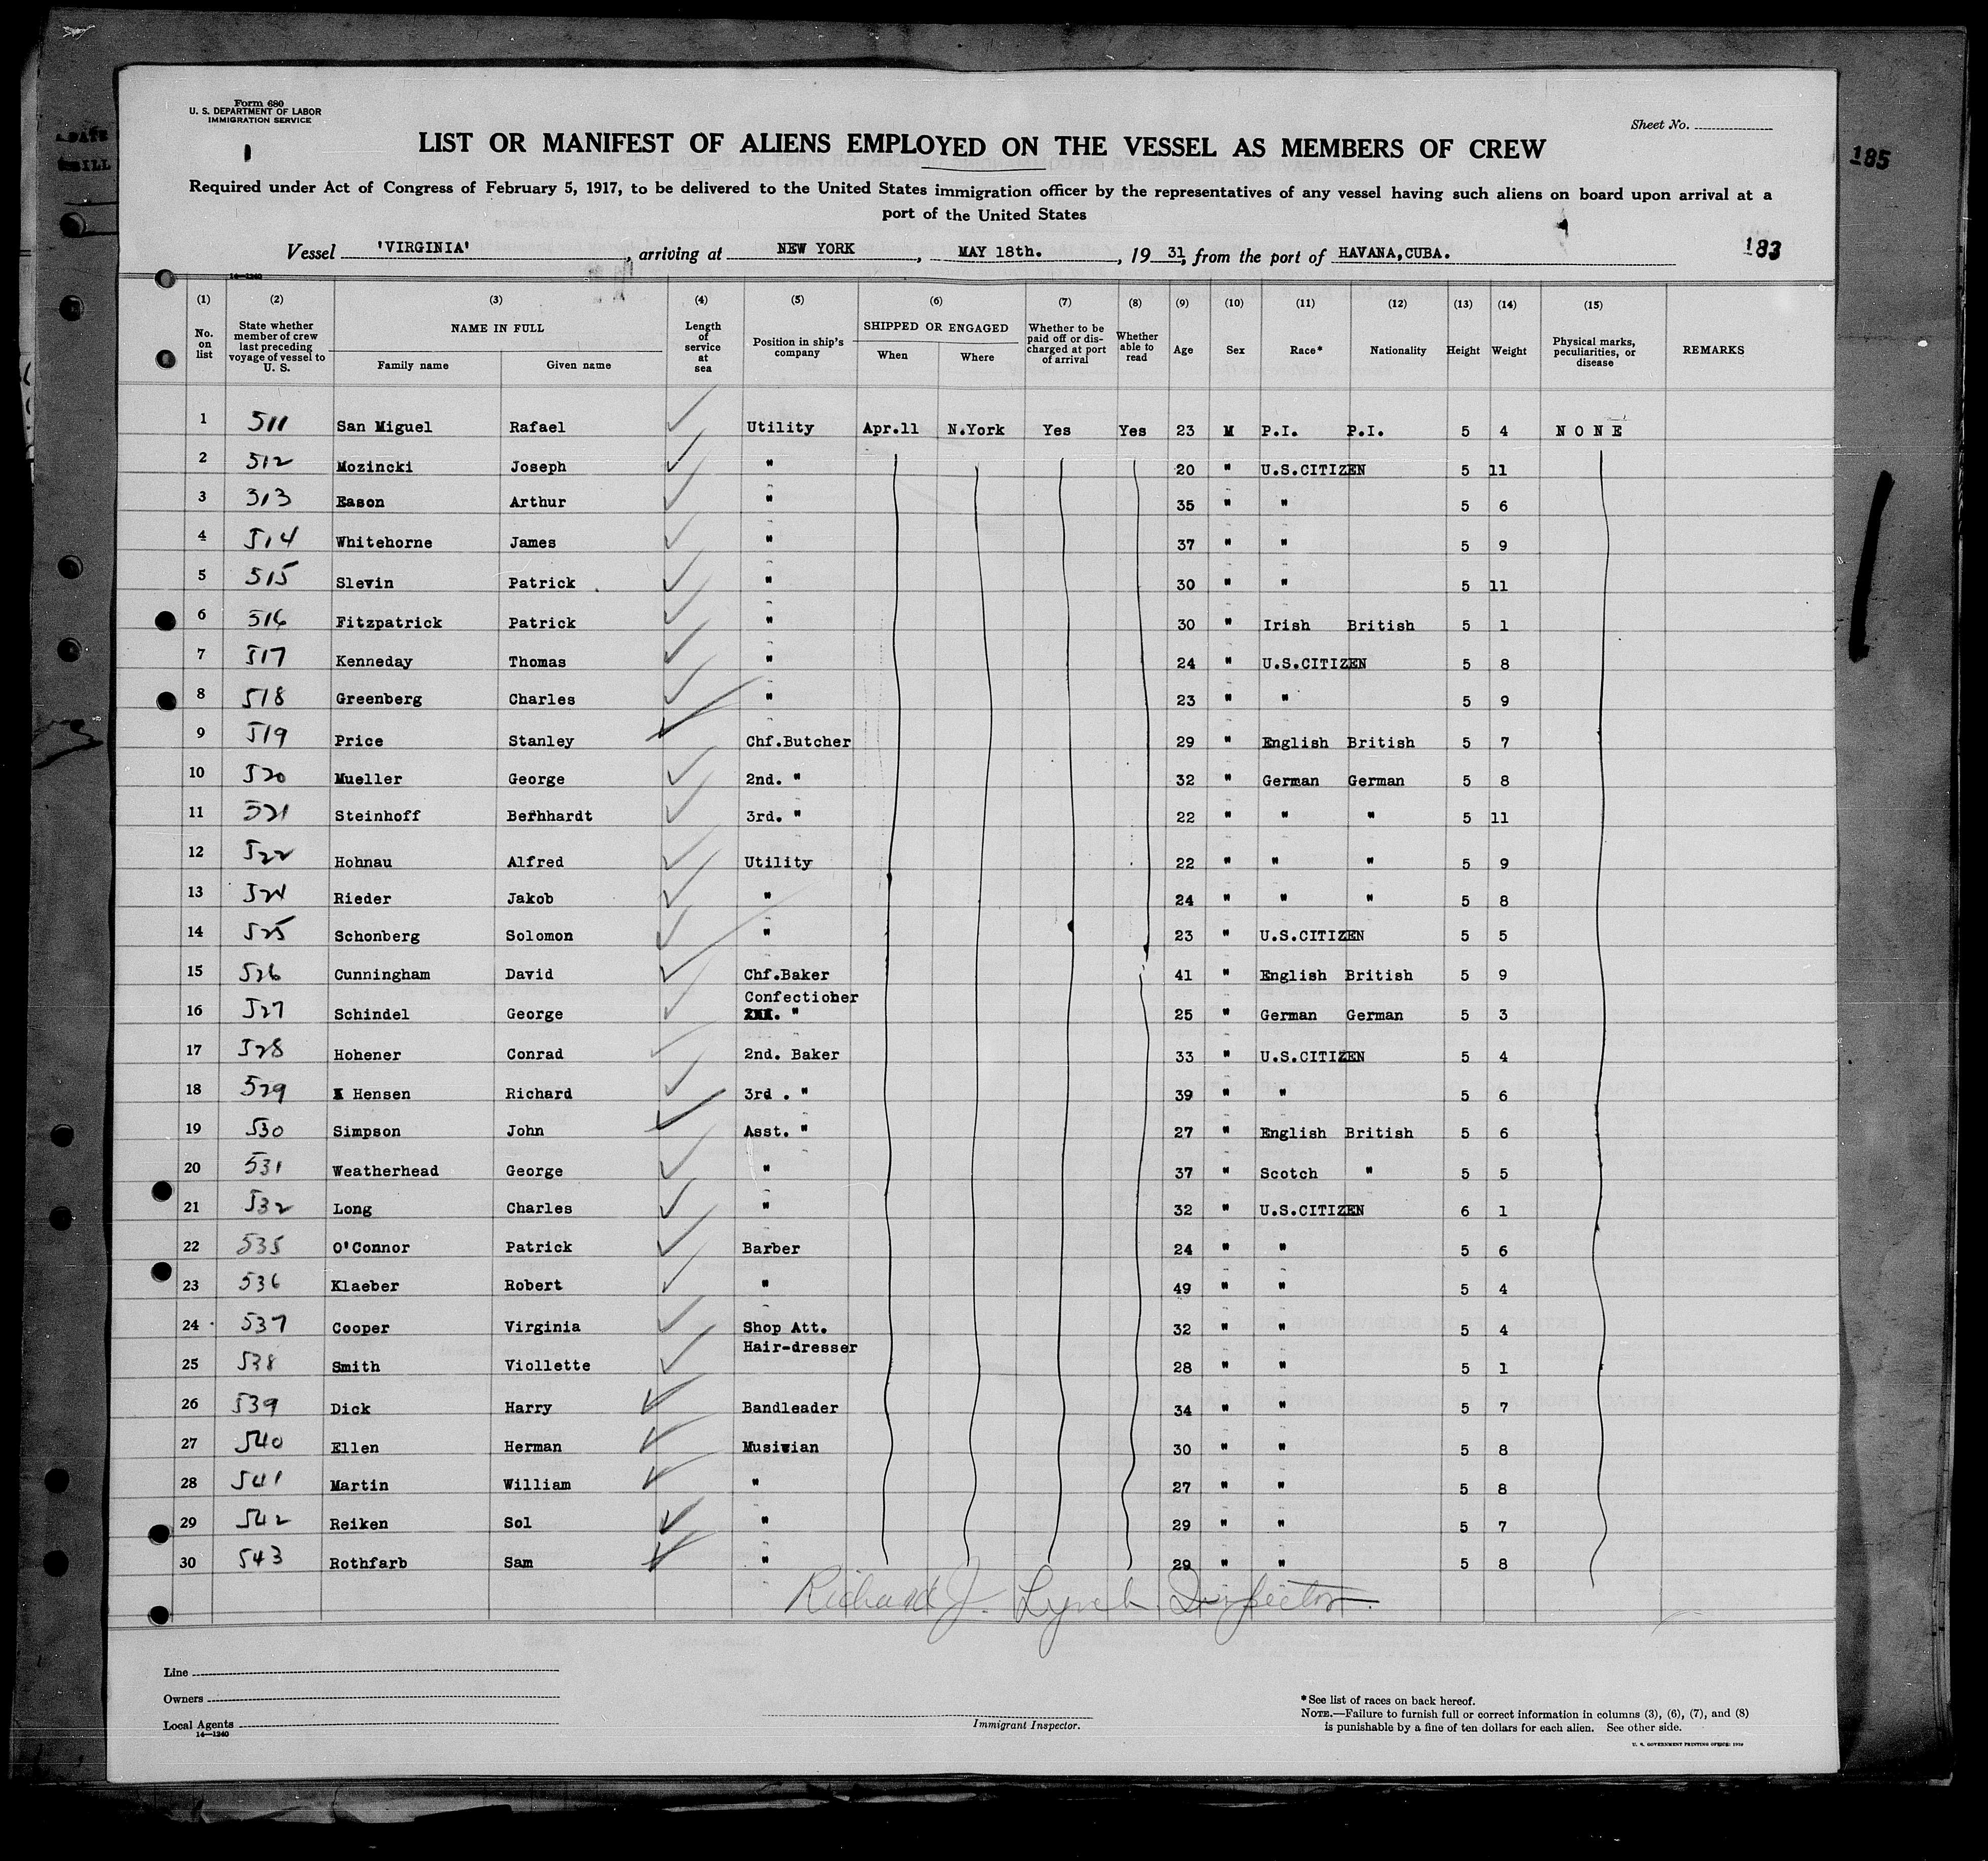 Form 680
U. S. DEPARTMENT OF LABOR
IMMIGRATION SERVICE
Sheet No.
LIST OR MANIFEST OF ALIENS EMPLOYED ON THE VESSEL AS MEMBERS OF CREW
185
Required under Act of Congress of February 5, 1917, to be delivered to the United States immigration officer by the representatives of any vessel having such aliens on board upon arrival at a
port of the United States
Vessel 'VIRGINIA', arriving at NEW YORK, MAY 18th., 19 31, from the port of HAVANA,CUBA. 183
14—1240
(1) (2) (3) (4) (5) (6) (7) (8) (9) (10) (11) (12) (13) (14) (15)
No. on list State whether member of crew last preceding voyage of vessel to U. S. NAME IN FULL Family name Given name Length of service at sea Position in ship's company SHIPPED OR ENGAGED When Where Whether to be paid off or discharged at port of arrival Whether able to read Age Sex Race* Nationality Height Weight Physical marks, peculiarities, or disease REMARKS
1 511 San Miguel Rafael Utility Apr.11 N.York Yes Yes 23 M P.I. P.I. 5 4 N O N E
2 512 Mozincki Joseph " 20 " U.S.CITIZEN 5 11
3 313 Eason Arthur " 35 " " 5 6
4 514 Whitehorne James " 37 " " 5 9
5 515 Slevin Patrick . " 30 " " 5 11
6 516 Fitzpatrick Patrick " 30 " Irish British 5 1
7 517 Kenneday Thomas " 24 " U.S.CITIZEN 5 8
8 518 Greenberg Charles " 23 " " 5 9
9 519 Price Stanley Chf.Butcher 29 " English British 5 7
10 520 Mueller George 2nd. " 32 " German German 5 8
11 521 Steinhoff Berhhardt 3rd. " 22 " " " 5 11
12 522 Hohnau Alfred Utility 22 " " " 5 9
13 524 Rieder Jakob " 24 " " " 5 8
14 525 Schonberg Solomon " 23 " U.S.CITIZEN 5 5
15 526 Cunningham David Chf.Baker 41 " English British 5 9
Confectioner
16 527 Schindel George " 25 " German German 5 3
17 528 Hohener Conrad 2nd. Baker 33 " U.S.CITIZEN 5 4
18 529 Hensen Richard 3rd . " 39 " " 5 6
19 530 Simpson John Asst. " 27 " English British 5 6
20 531 Weatherhead George " 37 " Scotch " 5 5
21 532 Long Charles " 32 " U.S.CITIZEN 6 1
22 535 O'Connor Patrick Barber 24 " " 5 6
23 536 Klaeber Robert " 49 " " 5 4
24 537 Cooper Virginia Shop Att. 32 " " 5 4
Hair-dresser
25 538 Smith Viollette 28 " " 5 1
26 539 Dick Harry Bandleader 34 " " 5 7
27 540 Ellen Herman Musiwian 30 " " 5 8
28 541 Martin William " 27 " " 5 8
29 542 Reiken Sol " 29 " " 5 7
30 543 Rothfarb Sam " 29 " " 5 8
Richard J. Lynch Inspector.
Line
Owners
Local Agents
14—1240
Immigrant Inspector.
*See list of races on back hereof.
NOTE.—Failure to furnish full or correct information in columns (3), (6), (7), and (8)
is punishable by a fine of ten dollars for each alien. See other side.